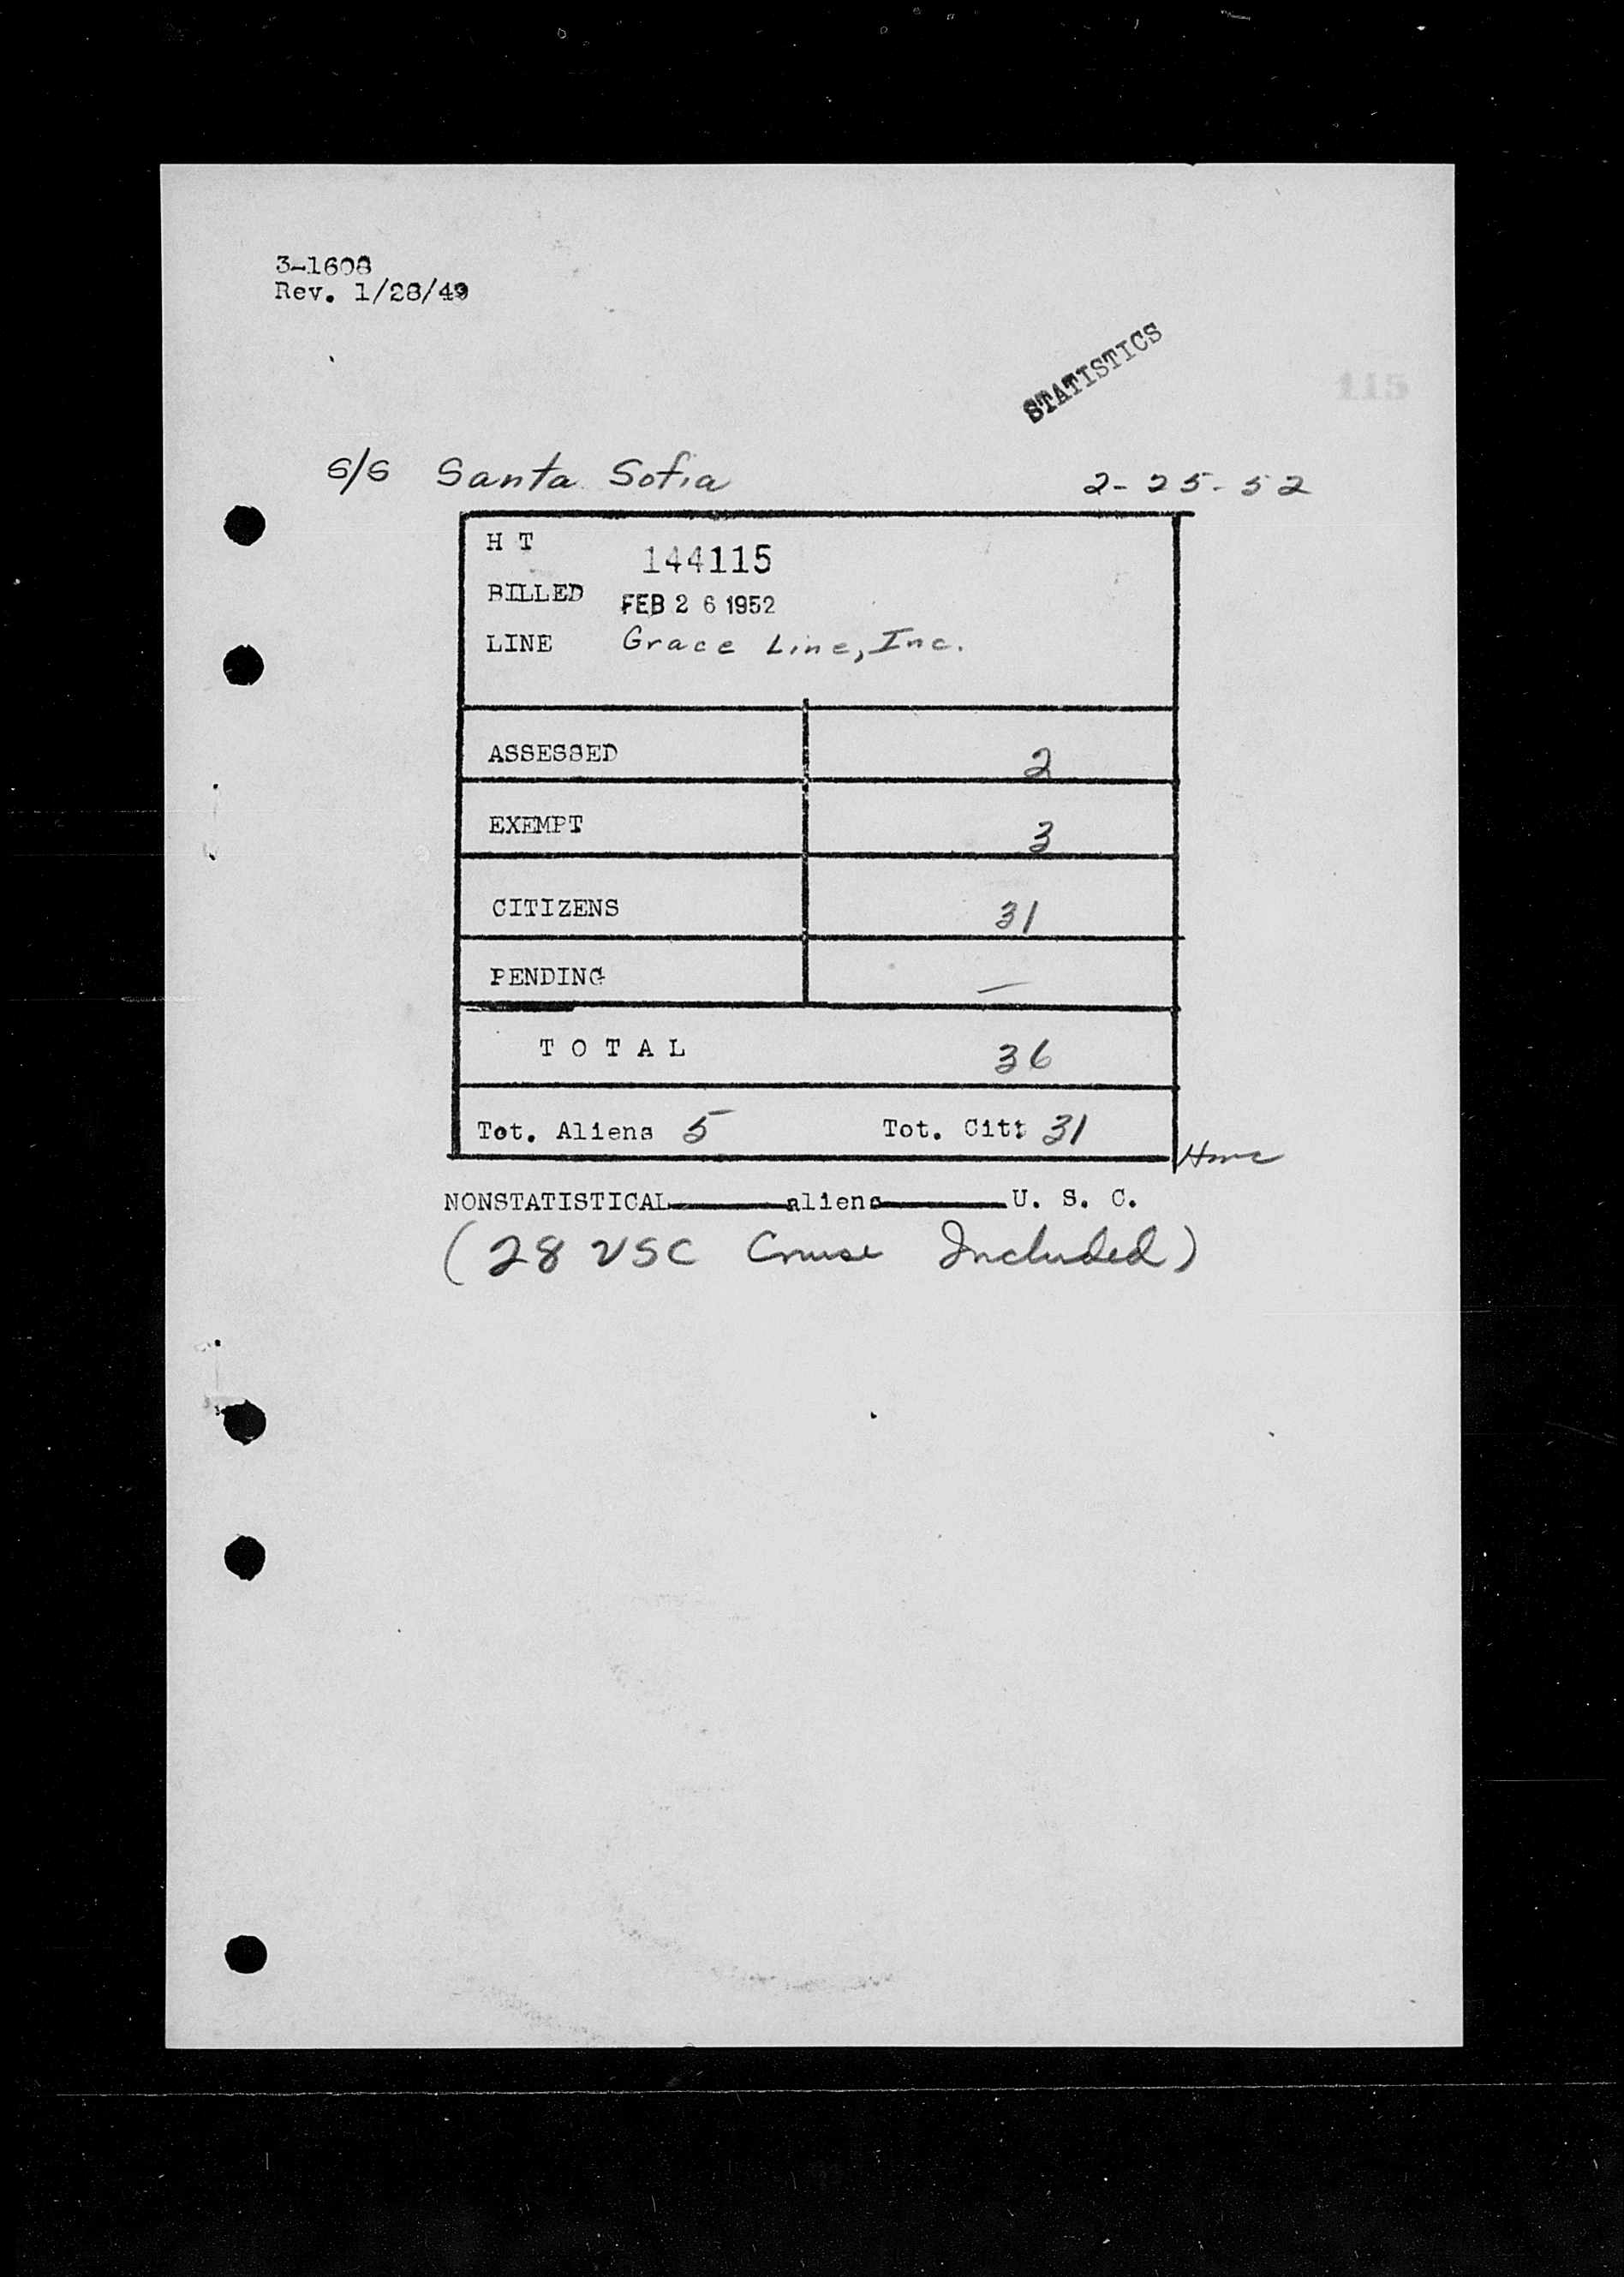 3-1608
Rev. 1/28/49
STATISTICS
115
S/S Santa Sofia 2-25-52
H T 144115
BILLED FEB 26 1952
LINE Grace Line, Inc.
ASSESSED 2
EXEMPT 3
CITIZENS 31
PENDING —
T O T A L 36
Tot. Aliens 5 Tot. Cit: 31
NONSTATISTICAL aliens U. S. C.
(28 USC Cruise Included)